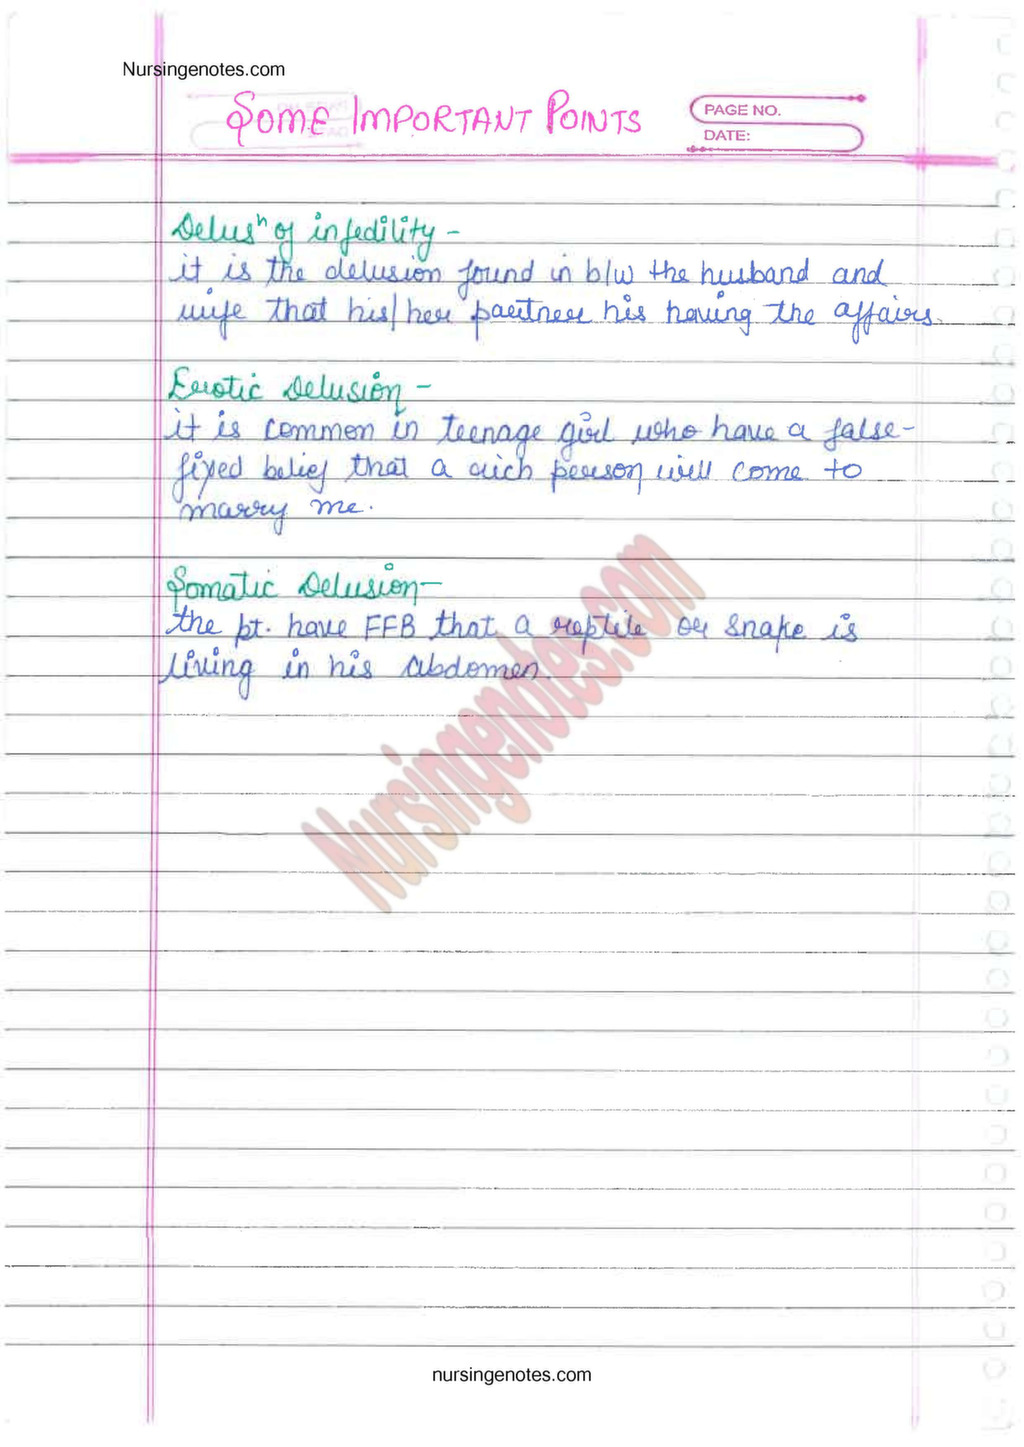 Nursingenotes.com
SOME IMPORTANT POINTS
PAGE NO.
DATE:
Delusⁿ of infedility -
it is the delusion found in b/w the husband and
wife that his/her partner his having the affairs.
Erotic Delusion -
it is common in teenage girl who have a false-
fixed belief that a rich person will come to
marry me.
Somatic Delusion-
the pt. have FFB that a reptile or snake is
living in his abdomen.
Nursingenotes.com
nursingenotes.com